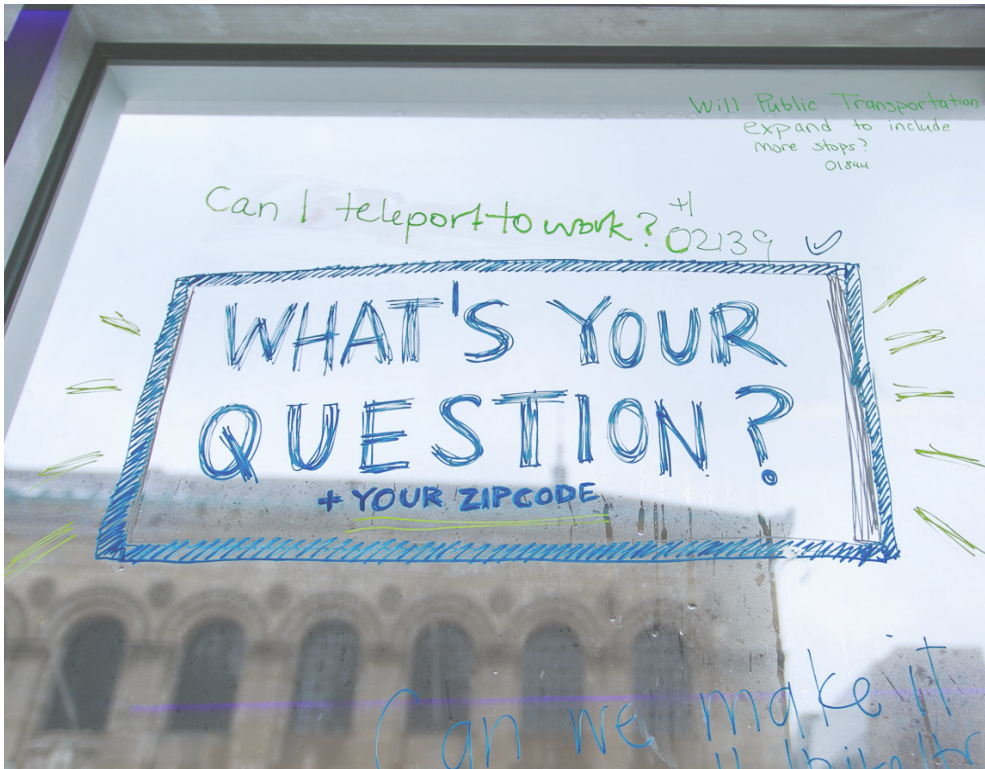 Will Public Transportation
expand to include
more stops?
01844
Can I teleport to work? +1
02139
WHAT'S YOUR
QUESTION?
+ YOUR ZIPCODE
Can we make it